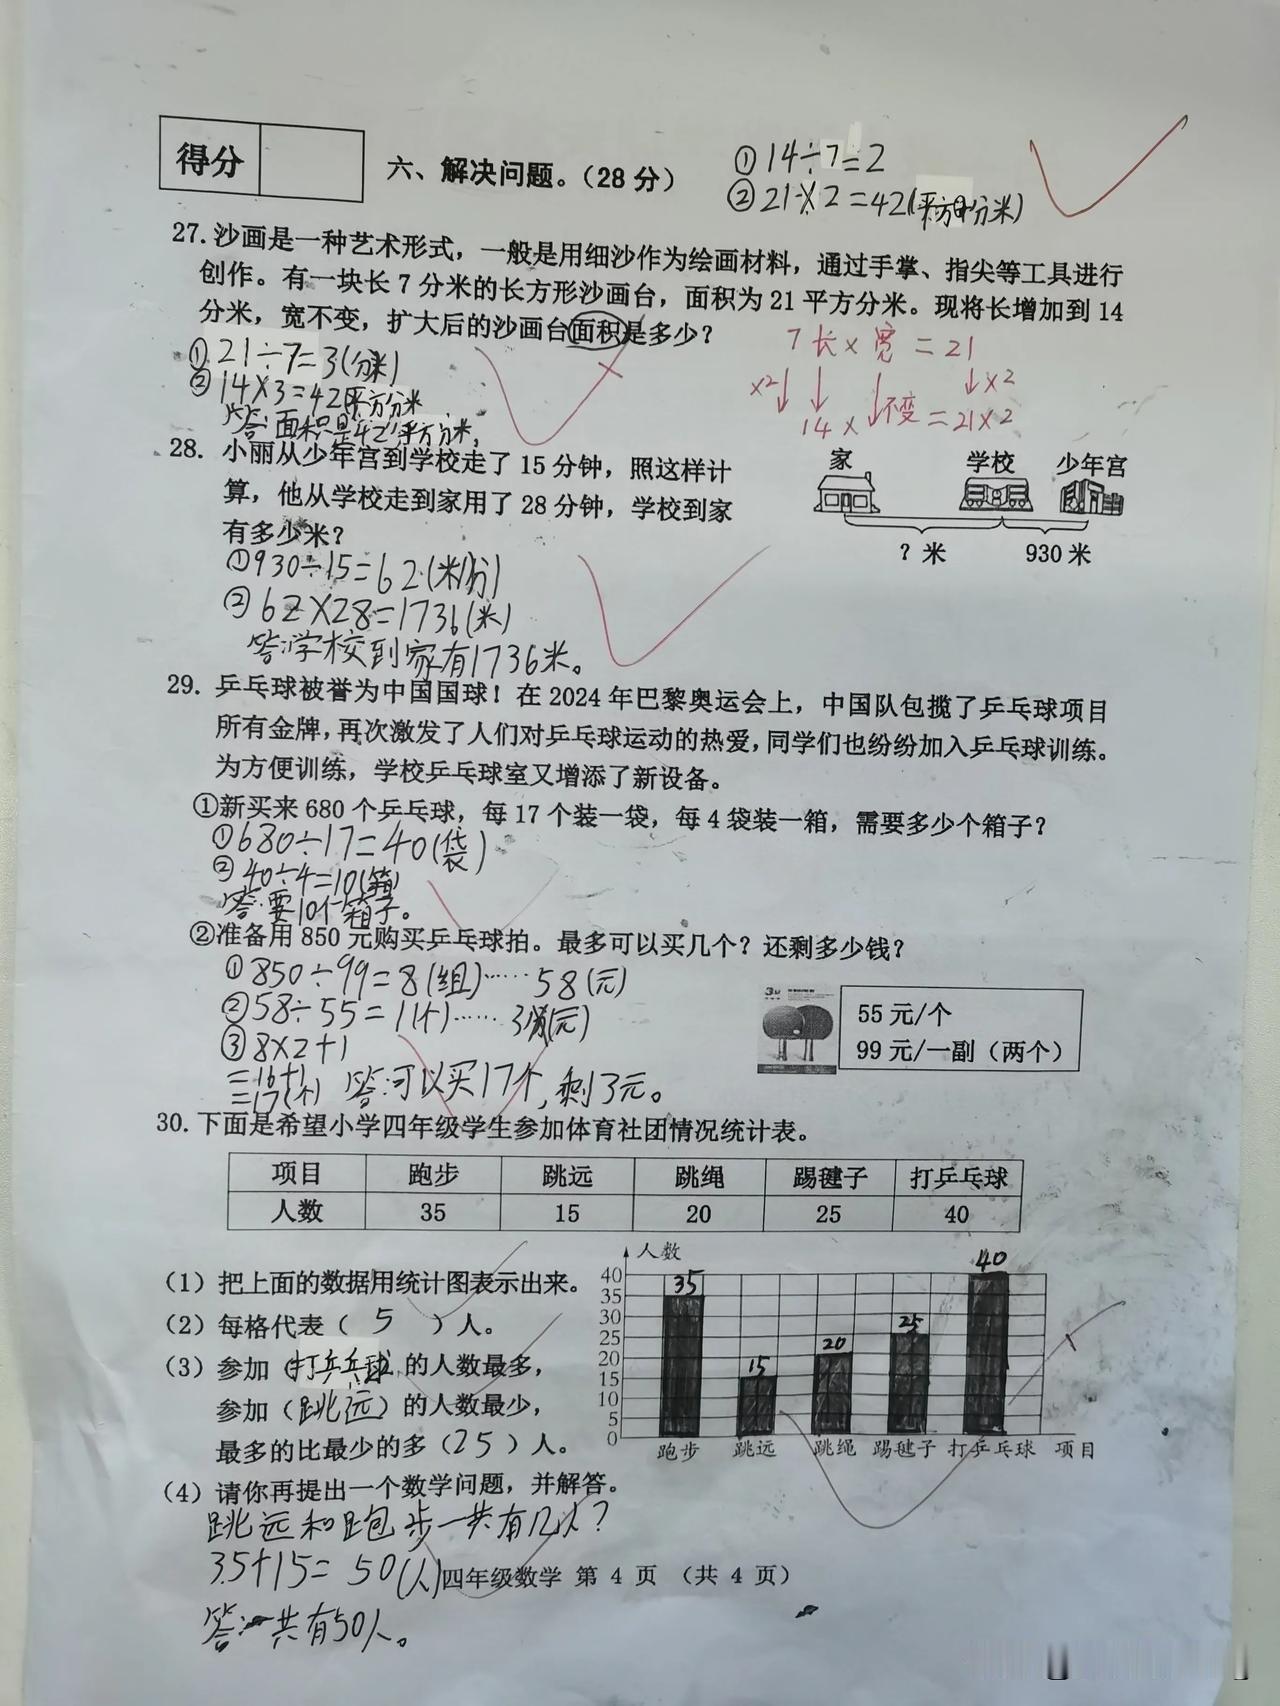 得分
六、解决问题。（28分）
①14÷7=2
②21×2=42(平方分米)
27.沙画是一种艺术形式，一般是用细沙作为绘画材料，通过手掌、指尖等工具进行
创作。有一块长7分米的长方形沙画台，面积为21平方分米。现将长增加到14
分米，宽不变，扩大后的沙画台面积是多少？
①21÷7=3(分米)
②14×3=42平方分米
答:面积是42平方分米,
7长×宽=21
×2 ×2
14×不变=21×2
28. 小丽从少年宫到学校走了15分钟，照这样计
算，他从学校走到家用了28分钟，学校到家
有多少米？
家 学校 少年宫
？米 930米
①930÷15=62(米/分)
②62×28=1736(米)
答:学校到家有1736米。
29. 乒乓球被誉为中国国球！在2024年巴黎奥运会上，中国队包揽了乒乓球项目
所有金牌，再次激发了人们对乒乓球运动的热爱，同学们也纷纷加入乒乓球训练。
为方便训练，学校乒乓球室又增添了新设备。
①新买来680个乒乓球，每17个装一袋，每4袋装一箱，需要多少个箱子？
①680÷17=40(袋)
②40÷4=10(箱)
答:要10个箱子。
②准备用850元购买乒乓球拍。最多可以买几个？还剩多少钱？
①850÷99=8(组)……58(元)
②58÷55=1(个)……3(元)
③8×2+1
=16+1
=17(个) 答:可以买17个,剩3元。
55元/个
99元/一副（两个）
30.下面是希望小学四年级学生参加体育社团情况统计表。
项目 跑步 跳远 跳绳 踢毽子 打乒乓球
人数 35 15 20 25 40
（1）把上面的数据用统计图表示出来。
（2）每格代表（ 5 ）人。
（3）参加（打乒乓球）的人数最多，
参加（跳远）的人数最少，
最多的比最少的多（25）人。
人数
40
35
30
25
20
15
10
5
0
35 15 20 25 40
跑步 跳远 跳绳 踢毽子 打乒乓球 项目
（4）请你再提出一个数学问题，并解答。
跳远和跑步一共有几人?
35+15=50(人)
答:一共有50人。
四年级数学 第4页（共4页）